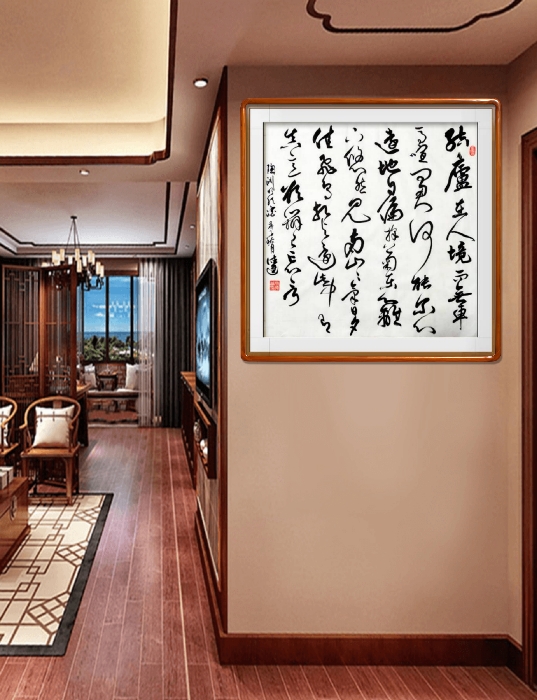 結廬在人境而無車
馬喧問君何能尔心
遠地自偏採菊東籬
下悠然見南山山氣日夕
佳飛鳥相与還此中有
真意欲辨已忘言
陶淵明